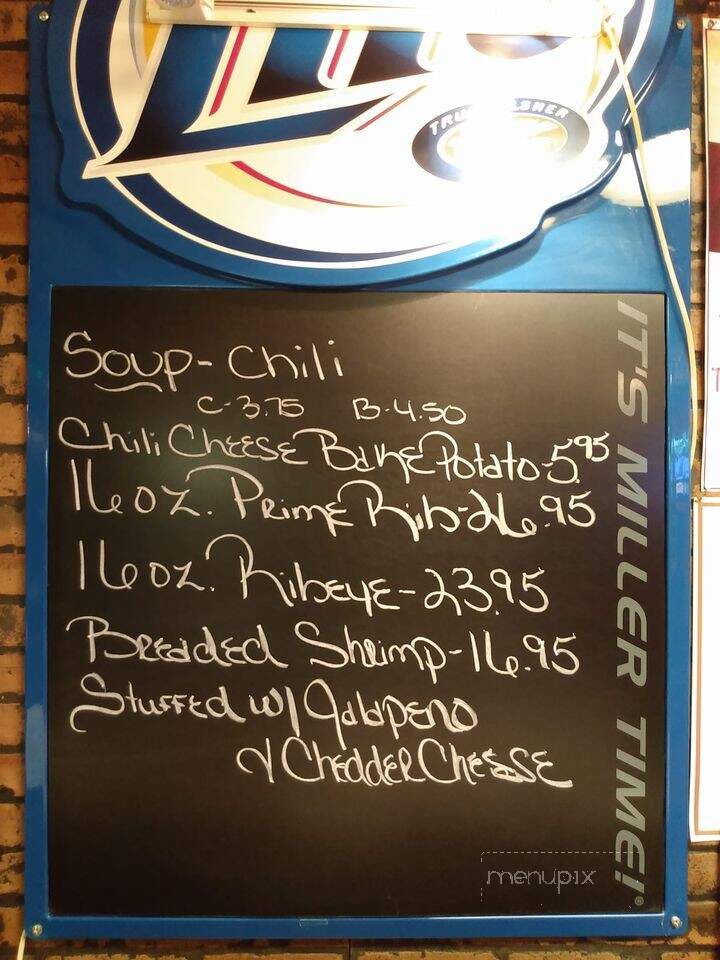 Lite
TRU
SHER
Soup - Chili
C-3.75 B-4.50
Chili Cheese Bake Potato-5.95
16oz. Prime Rib-26.95
16oz. Ribeye-23.95
Breaded Shrimp-16.95
Stuffed w/ Jalapeno
& Chedder Cheese
IT'S MILLER TIME!®
menupix